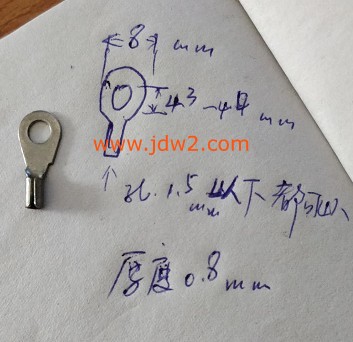 8 mm
4.3 - 4.4 mm
www.jdw2.com
孔 1.5 mm 以下都可以
厚度 0.8 mm